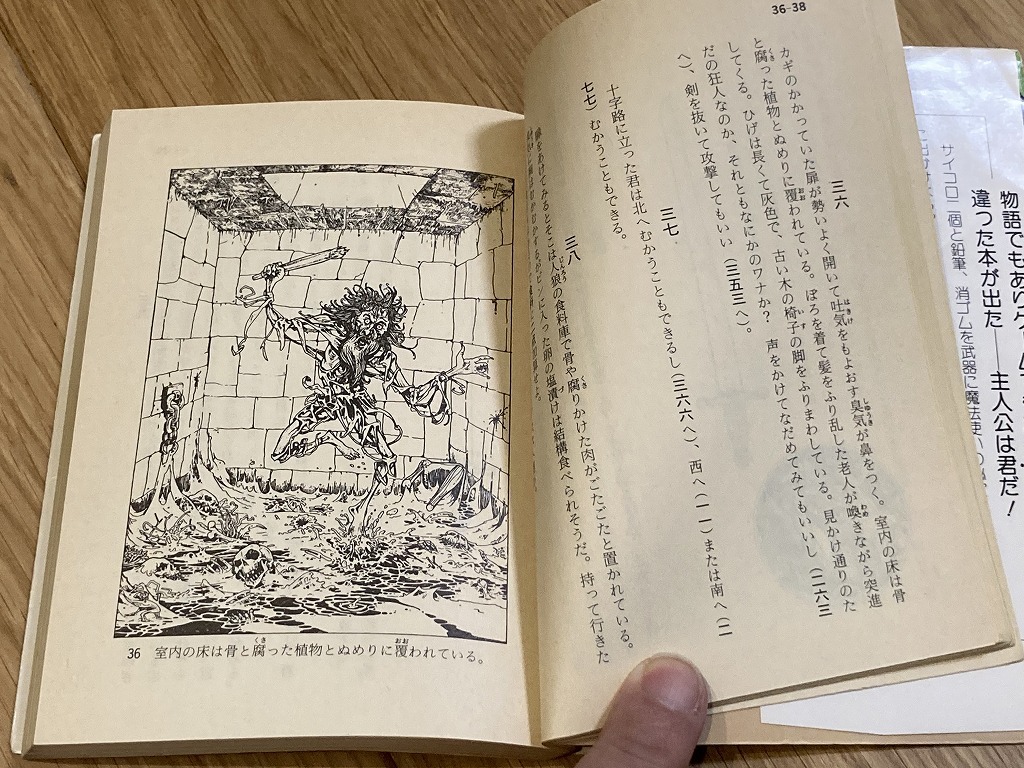 36-38
三六
カギのかかっていた扉が勢いよく開いて吐気をもよおす臭気が鼻をつく。室内の床は骨
と腐った植物とぬめりに覆われている。ぼろを着て髪をふり乱した老人が喚きながら突進
してくる。ひげは長くて灰色で、古い木の椅子の脚をふりまわしている。見かけ通りのた
だの狂人なのか、それともなにかのワナか？　声をかけてなだめてみてもいいし（二六三
へ）、剣を抜いて攻撃してもいい（三五三へ）。
三七
十字路に立った君は北へむかうこともできるし（三六六へ）、西へ（一一）または南へ（二
七七）むかうこともできる。
三八
扉をあけてみるとそこは人狼の食料庫で骨や腐りかけた肉がごたごたと置かれている。
ビンに入った卵の塩漬けは結構食べられそうだ。持って行きた
36 室内の床は骨と腐った植物とぬめりに覆われている。
物語でもあり
違った本が出た――主人公は君だ！
サイコロ二個と鉛筆、消ゴムを武器に魔法使い